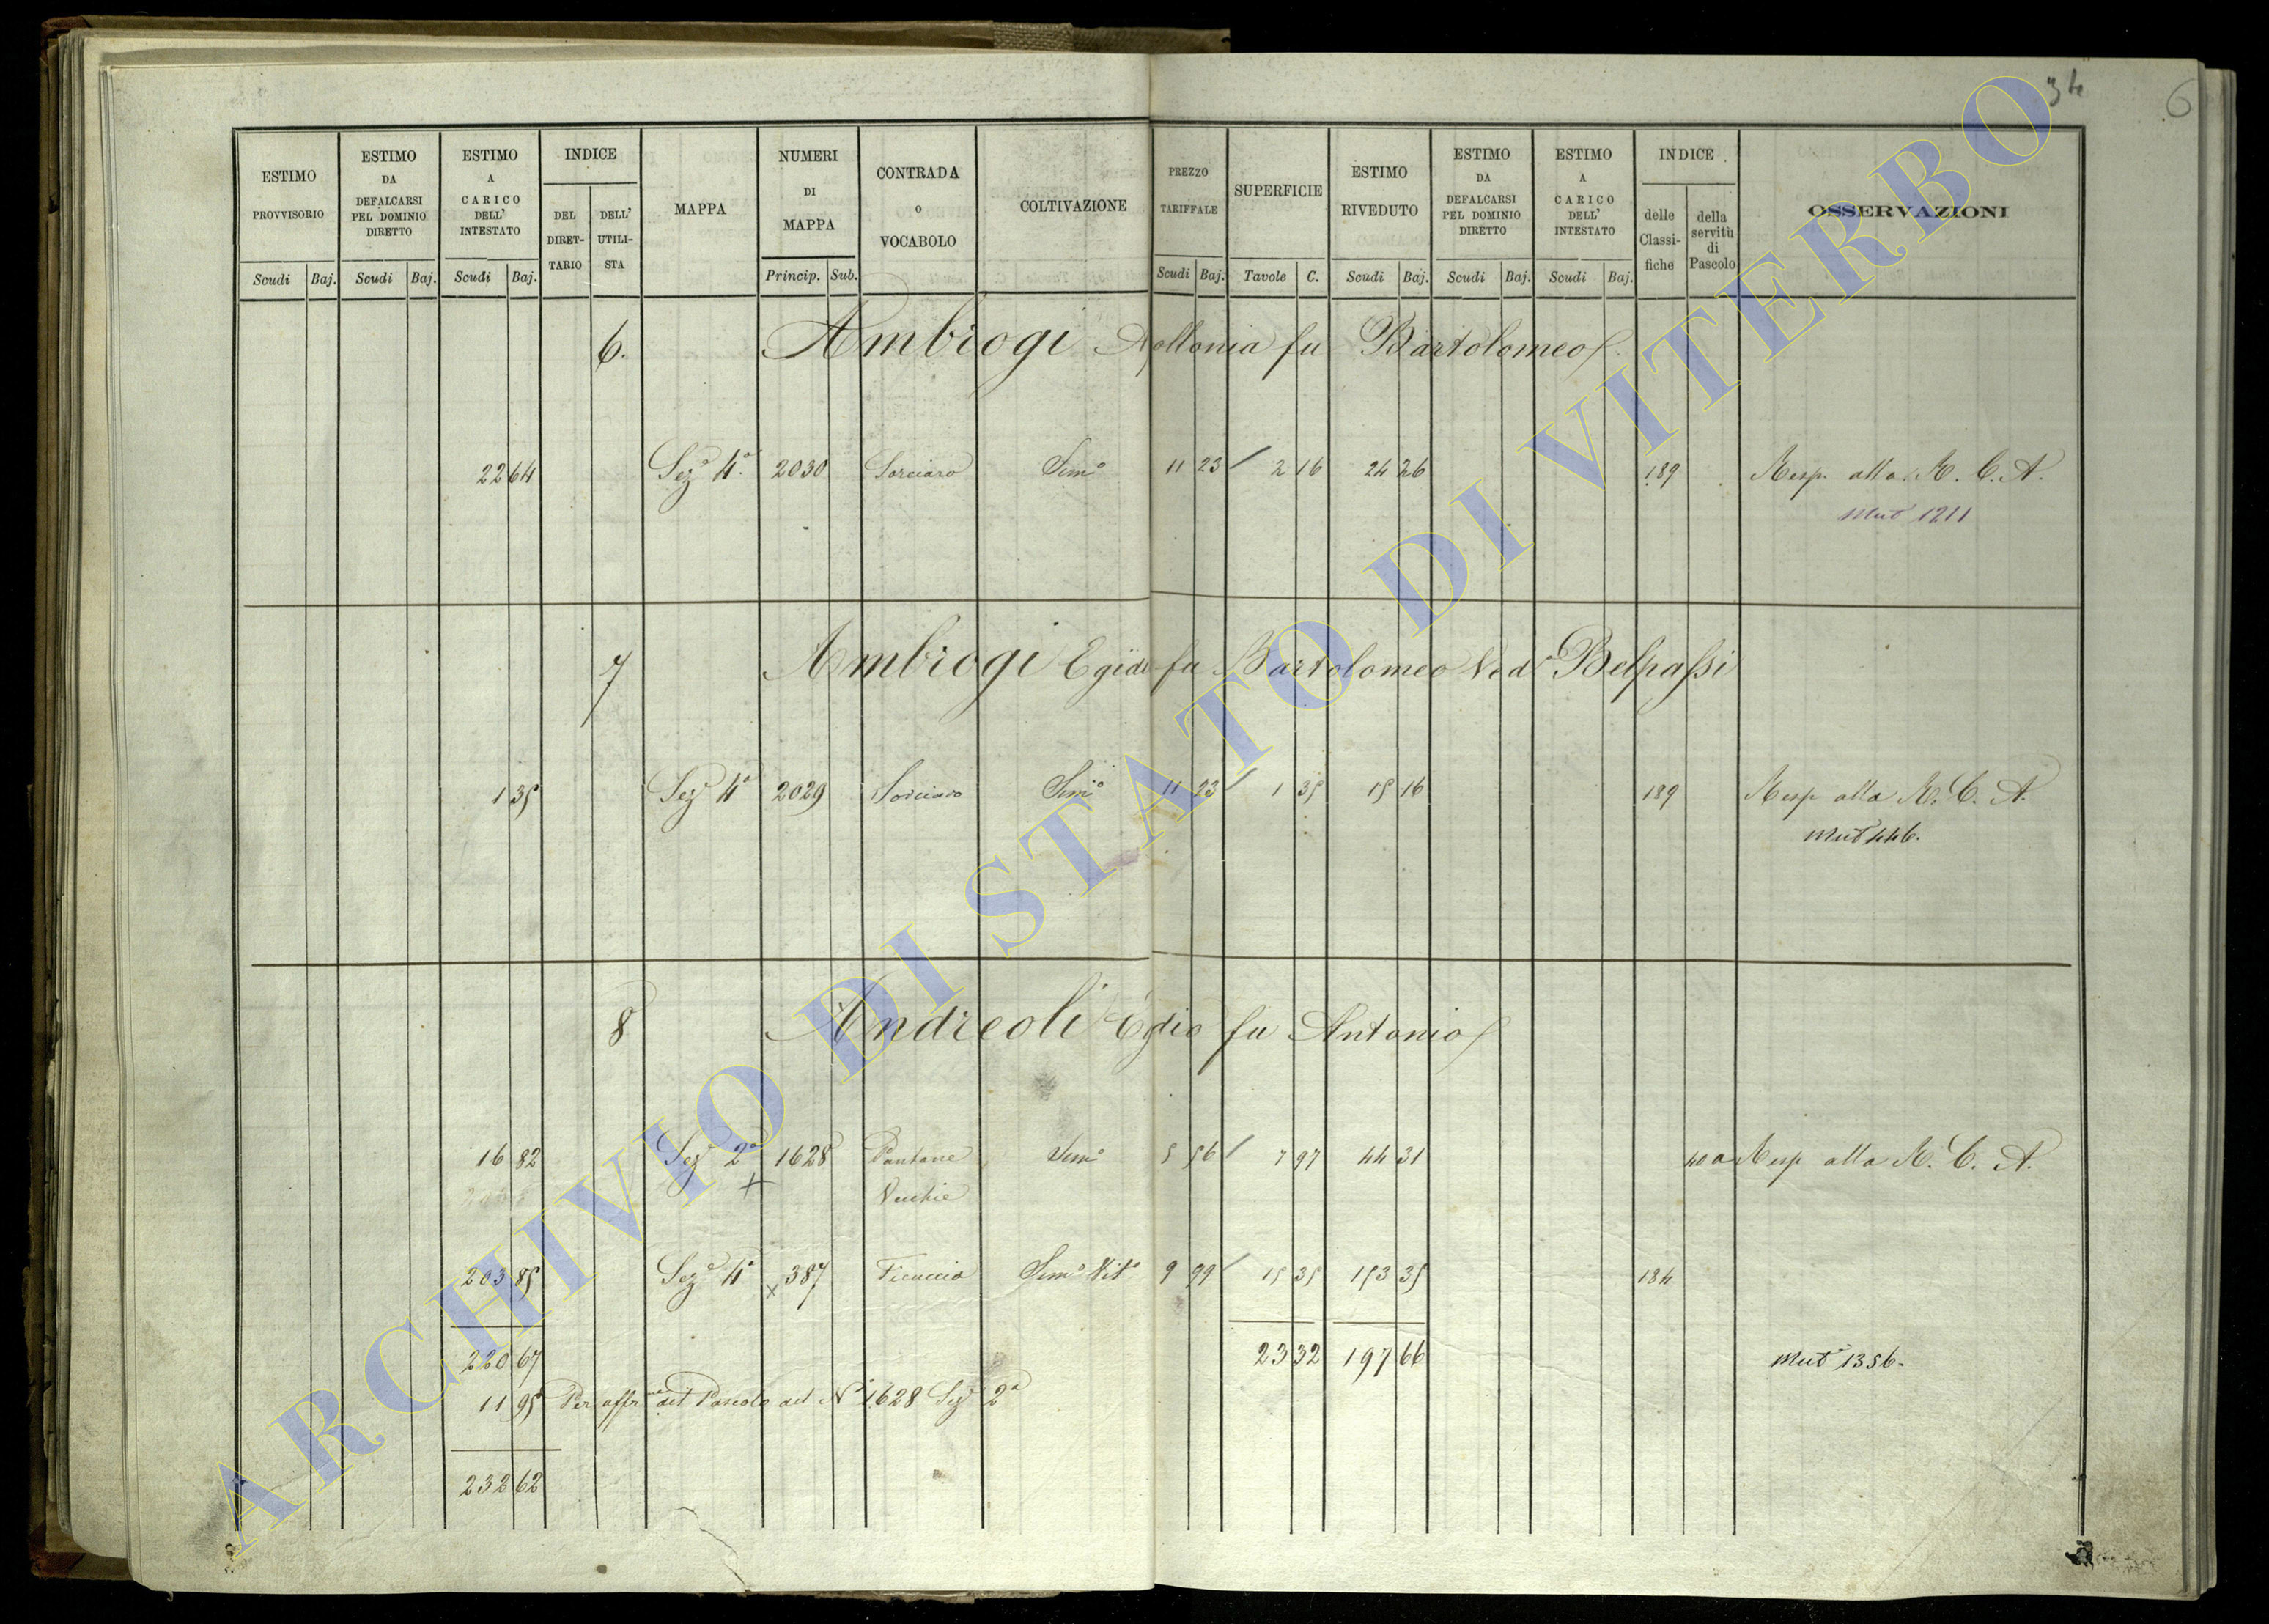 34
6
ESTIMO PROVVISORIO
ESTIMO DA DEFALCARSI PEL DOMINIO DIRETTO
ESTIMO A CARICO DELL' INTESTATO
INDICE
DEL DIRET-TARIO
DELL' UTILI-STA
MAPPA
NUMERI DI MAPPA
CONTRADA o VOCABOLO
COLTIVAZIONE
PREZZO TARIFFALE
SUPERFICIE
ESTIMO RIVEDUTO
ESTIMO DA DEFALCARSI PEL DOMINIO DIRETTO
ESTIMO A CARICO DELL' INTESTATO
INDICE
delle Classi-fiche
della servitù di Pascolo
OSSERVAZIONI
Scudi Baj. Scudi Baj. Scudi Baj. Princip. Sub. Scudi Baj. Tavole C. Scudi Baj. Scudi Baj. Scudi Baj.
6. Ambrogi Apollonia fu Bartolomeo
22 64 Sez.e 4a 2030 Sorciaro Sem.o 11 23 2 16 24 26 189 Resp. alla R. C. A.
Mut 1211
7 Ambrogi Egidi fu Bartolomeo Ved.a Belpassi
1 35 Sez.e 4a 2029 Sorciaro Sem.o 11 23 1 35 15 16 189 Resp alla R. C. A.
Mut 446.
8 Andreoli Egdio fu Antonio
16 82 Sez.e 2a 1628 Pantane Sem.o 5 56 7 97 44 31 40 a Resp alla R. C. A.
Vecchie
203 85 Sez.e 4a 387 Ficuccia Sem.o Vit.o 9 99 15 35 153 35 184
220 67 23 32 197 66 Mut 1356.
11 95 Per affr.ne del Pascolo del N.o 1628 Sez 2a
232 62
ARCHIVIO DI STATO DI VITERBO